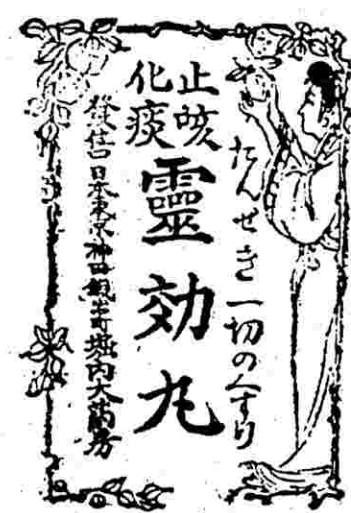 たんせき一切のくすり
止咳
化痰
靈効丸
日本東京神田町堀内大房